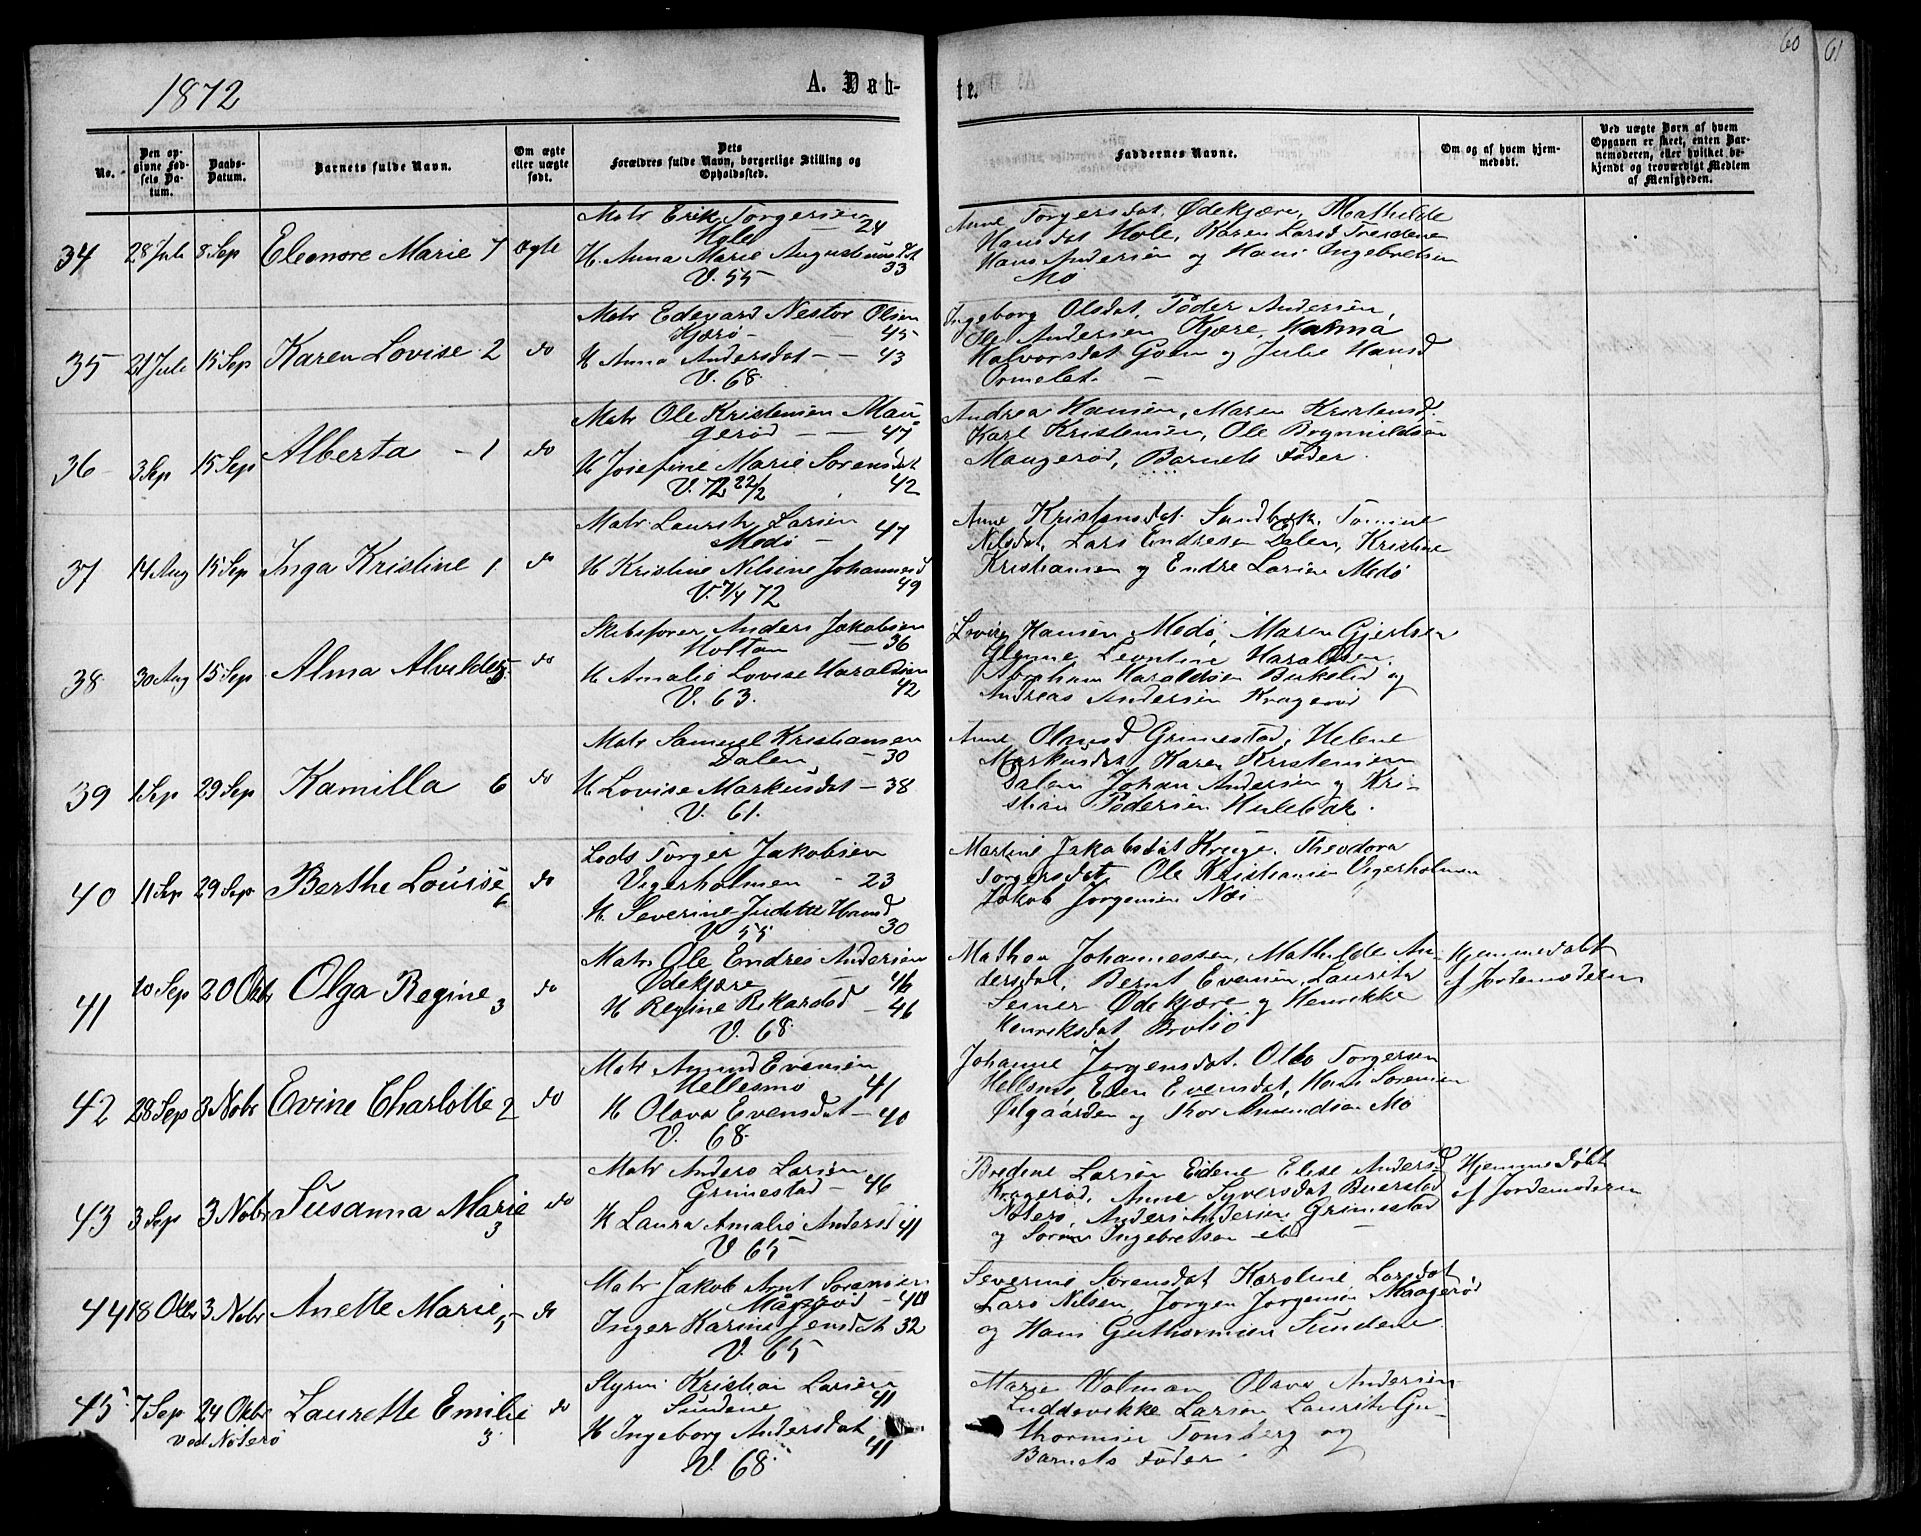 1872
A. Døb-
te.
60
61
No.
Den op-
givne Fød-
sels Da-
tum.
Daabs-
Datum.
Barnets fulde Navn.
Om ægte
eller uægte
født.
Dets
Forældres fulde Navn, borgerlige Stilling og
Opholdssted.
Faddernes Navne.
Om og af hvem hjem-
medøbt.
Ved uægte Børn af hvem
Opgaven er skeet, enten Bar-
nemoderen, eller hvilket be-
kjendt og troværdigt Medlem
af Menigheden.
34 28 Juli 8 Sep Eleonore Marie 7 ægte
Matr Erik Torgersen
Hole 24
H Anna Marie Augustinusdt
33
V. 55
Anne Torgersdat, Ødekjære, Mathilde
Hansdat Hole, Karen Larsd
Hans Andersen og Hans Ingebretsen
Mo
35 21 Juli 15 Sep Karen Lovise 2 do
Matr Edevard Nestor Olsen
Kjærø 45
H Anna Andersdat 43
V. 68.
Ingeborg Olsdat, Peder Andersen,
Ole Andersen Kjære,
Halvorsdat Goen og Julie Hansd
Ormelet.
36 3 Sep 15 Sep Alberta 1 do
Matr Ole Kristensen Mau
gerød 47
H Josefine Marie Sørensdat
V. 72 22/2 42
Andrea Hansen, Maren Kristensd.
Karl Kristensen, Ole Brynnildsen
Maugerød, Barnets Fader.
37 14 Aug 15 Sep Inga Kristine 1 do
Matr Laurits Larsen
Medø 47
H Kristine Nilsine Johannesd
V. 7/4 72 49
Anne Kristensdat. Sandbæk, Tomine
Nilsdat, Lars Endresen Dalen, Kristine
Kristiansen og Endre Larsen Medø
38 30 Aug 15 Sep Alma Alvilde 5 do
Skibsfører Anders Jakobsen
Holtan 36
H Amalie Lovise Haraldsen
V. 63. 42
Lovise Hansen Medø, Maren Gjertsen
Glenne Leontine Haraldsen,
Abraham Haraldsen Birkelid og
Andreas Andersen Kragerød
39 1 Sep 29 Sep Kamilla 6 do
Matr Samuel Kristiansen
Dalen 30
H Lovise Markusdat 38
V. 61.
Anne Olausd Grimestad, Helene
Markusdat, Karen Kristensen
Dalen Johan Andersen og Kri-
stian Pedersen Hulebak.
40 11 Sep 29 Sep Berthe Louise 6 do
Lods Torger Jakobsen
Vegerholmen 23
H. Severine Judette Hansd
V 55 30
Martine Jakobsdat Kruge. Theodora
Torgersdat, Ole Kristiansen Vegerholmen
Jakob Jørgensen Nes
41 10 Sep 20 Oktr Olga Regine 3 do
Matr. Ole Endres Andersen
Ødekjære 46
H Regine Rikardsd 46
V. 68.
Mathea Johannessen, Mathilde An-
dersdat, Bernt Evensen, Laurits
Ødekjære og Henrikke
Henriksdat Brøtsø
Hjemmedøbt
af Jordemoderen
42 28 Sep 3 Nobr Evine Charlotte 2 do
Matr Amund Evensen
Hellesmo 41
H Olava Evensdat 40
V. 68.
Johanne Jørgensdat. Olea Torgersen
Hellesmo Elen Evensdat, Hans Sørensen
Østgaarden og Thor Amundsen Mo
43 3 Sep 3 Nobr Susanna Marie 3 do
Matr Anders Larsen
Grimestad 46
H Laura Amalie Andersd 41
V 65
Bredine Larsen Eidene Elise Andersd
Kragerød, Anne Syversdat Buerstad
Nøterø, Anders Andersen Grimestad
og Søren Ingebretsen
Hjemmedøbt
af Jordemoderen
44 18 Oktr 3 Nobr Anette Marie 5 do
Matr Jakob Arnt Sørensen
Mågerød 40
Inger Karine Jensdat 32
V. 65
Severine Sørensdat Karoline Larsdat
Lars Nilsen, Jørgen Jørgensen Maagerød
og Hans Guthormsen Sundene.
45 7 Sep 24 Oktbr Laurette Emilie 3 do
ved Nøterø
Styrm Kristian Larsen
Sundene 41
H Ingeborg Andersdat
41
V. 68
Marie Holman, Olava Andersen
Luddevikke Larsen Laurits Gu-
thormsen Tønsberg og
Barnets Fader.